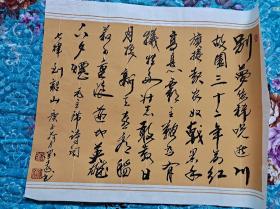 别夢依稀咒逝川
故園三十二年前紅
旗捲起農奴戟黑手
高懸霸主鞭為有
犧牲多壯志敢教日
月换新天喜看稻
菽千重浪遍地英雄
下夕煙 毛主席詩詞
七律 到韶山 庚子